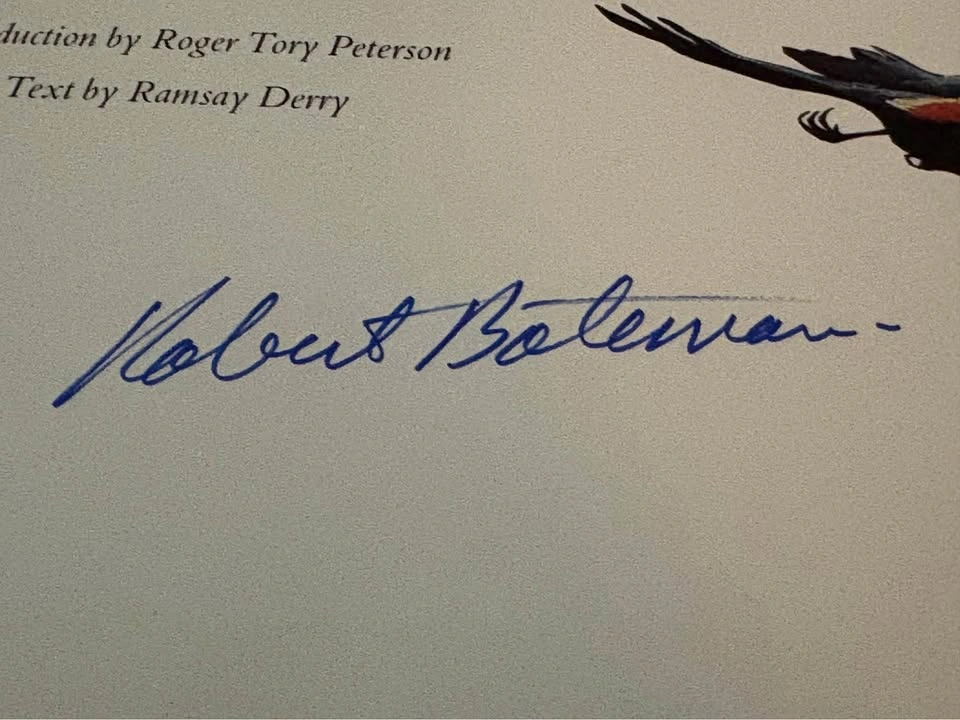 duction by Roger Tory Peterson
Text by Ramsay Derry
Robert Bateman